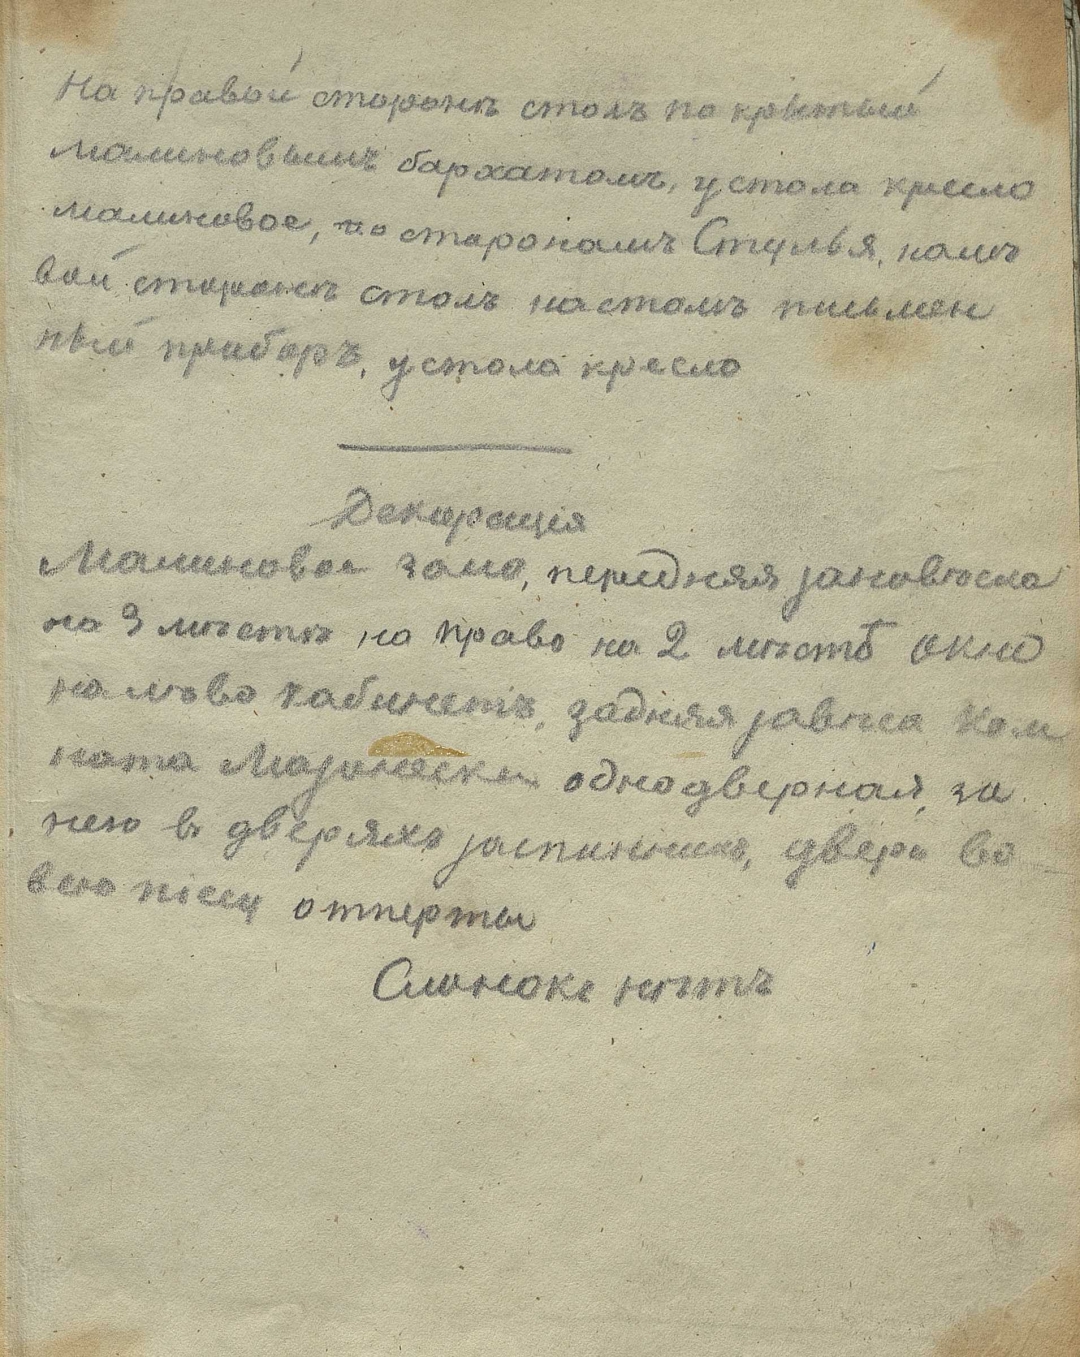 На правой сторонѣ столъ по крытый
малиновымъ бархатомъ, у стола кресло
малиновое, по старонамъ Стулья, налѣ
вой старонѣ столъ настолѣ письмен
ный приборъ, у стола кресло
Декорація
Малиновое зало, передняя занавѣса
на 3 мѣстѣ на право на 2 мѣстѣ окно
на лѣво кабинетъ, задняя завѣса Ком
ната однодверная, за
нею въ дверяхъ заспинникъ, двери во
всю піесу отперты
нѣтъ